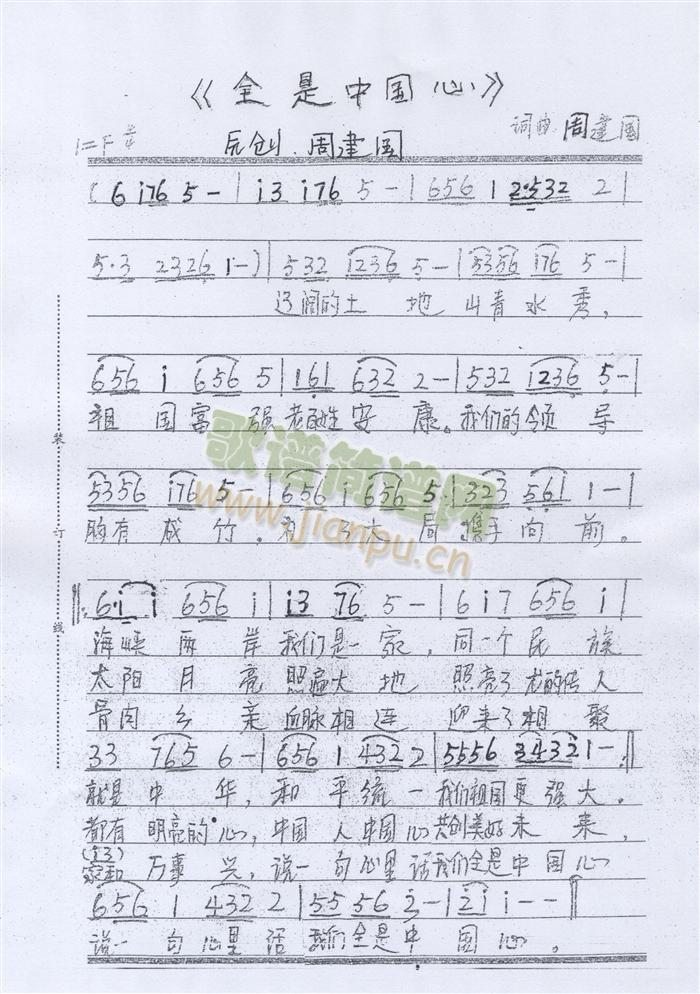 《全是中国心》
1=F 3/4 原创.周建国 词曲 周建国
(6 i76 5 - | i3 i76 5 - | 656 1 2·532 2 |
5·3 2326 1 -) | 532 1236 5 - | 5356 i76 5 - |
辽阔的土 地 山青水 秀,
656 i 656 5 | 161 632 2 - | 532 1236 5 - |
祖 国富 强老百姓安 康。我们的领 导
5356 i76 5 - | 656 i 656 5 | 323 561 1 - |
胸有 成 竹. 大 局 携手 向 前。
6·i i 656 i | i3 76 5 - | 6 i7 656 i |
海峡 两 岸 我们是一 家, 同一个民 族
太阳 月 亮 照遍大 地 照亮了龙的传人
骨肉 乡 亲 血脉相 连 迎来了相 聚
33 765 6 - | 656 1 432 2 | 5556 3432 1 - :||
就是 中 华, 和 平统 一 我们祖国更强大。
都有 明亮的心, 中国 人中国心共创美好未 来,
(i3)
家和 万事 兴, 说一 句心里 话我们全是中国心
656 1 432 2 | 55 56 2 - | 2i i - - ||
说一 句心里 话 我们全是中 国 心 。
装
订
线
歌谱简谱网
www.jianpu.cn